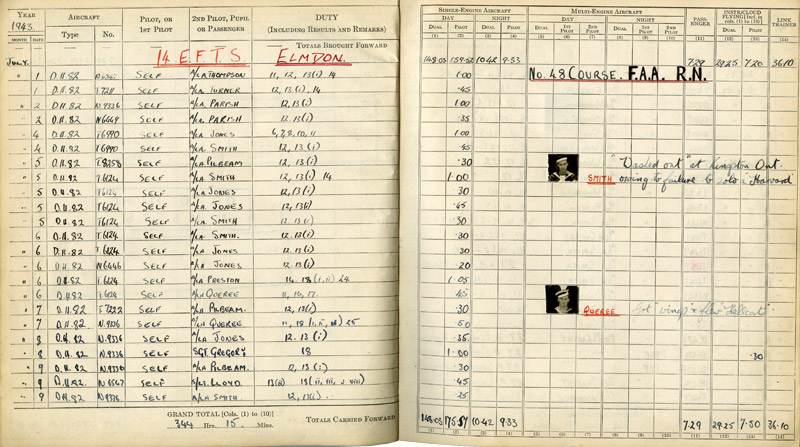 YEAR
1943
MONTH DATE
AIRCRAFT
Type No.
PILOT, OR 1ST PILOT
2ND PILOT, PUPIL OR PASSENGER
DUTY
(INCLUDING RESULTS AND REMARKS)
TOTALS BROUGHT FORWARD
14 E.F.T.S ELMDON.
JULY.
1 D.H.82 SELF A/LA THOMPSON 11, 12, 13(i) 14
1 D.H.82 T7211 SELF A/LA TURNER 12, 13(i), 14
2 D.H.82 N.9336 SELF A/LA PARISH 12.13(i)
2 D.H.82 N6449 SELF A/LA PARISH 12.13(i)
4 D.H.82 T6990 SELF A/LA JONES 6,7,8,10,11
4 D.H.82 T6990 SELF A/LA SMITH 12, 13(i)
5 D.H.82 T8258 SELF A/LA PILBEAM 12, 13(i)
5 D.H.82 T6124 SELF A/LA SMITH 12, 13(i) 14
5 D.H.82 T6124 SELF A/LA JONES 12, 13(i)
5 D.H.82 T6124 SELF A/LA JONES 12, 13(i)
5 D.H.82 T6124 SELF A/LA SMITH 12, 13(i)
6 D.H.82 T.6124 SELF A/LA SMITH 12. 13(i)
6 D.H.82 T.6124 SELF A/LA JONES 12. 13(i)
6 D.H.82 N6446 SELF A/LA JONES 12. 13(i)
6 D.H.82 T.6124 SELF A/LA PRESTON 24
6 D.H.82 SELF A/LA QUEREE
7 D.H.82 T7222 SELF A/LA PILBEAM 12, 13(i)
7 D.H.82 N.9336 SELF A/LA QUEREE 25
8 D.H.82 N.9336 SELF A/LA JONES 12. 13(i)
8 D.H.82 N.9336 SELF SGT. GREGORY 18
9 D.H.82 N.9336 SELF A/LA PILBEAM 12, 13(i)
9 D.H.82 SELF S/LT. LLOYD
9 D.H.82 N9336 SELF A/LA SMITH 12, 13(i)
GRAND TOTAL [Cols. (1) to (10)]
344 Hrs. 15 Mins.
TOTALS CARRIED FORWARD
SINGLE-ENGINE AIRCRAFT
DAY NIGHT
DUAL PILOT DUAL PILOT
(1) (2) (3) (4)
MULTI-ENGINE AIRCRAFT
DAY NIGHT
DUAL 1ST PILOT 2ND PILOT DUAL 1ST PILOT 2ND PILOT
(5) (6) (7) (8) (9) (10)
PASSENGER
(11)
INSTR/CLOUD FLYING [Incl. in cols. (1) to (10)]
DUAL PILOT
(12) (13)
LINK TRAINER
(14)
148.03 159.52 10.42 9.33 7.29 29.25 7.20 36.10
No. 48 COURSE. F.A.A. R.N.
1.00
.45
1.00
.35
1.00
.45
.30
1.00
.30
.45
.30
.30
.30
.20
1.05
.45
.30
.50
.35
1.00 .30
.30
.45
.25
"Washed out" at Kingston Ont.
SMITH owing to failure to solo Harvard
QUEREE Got "wings" & flew "Hellcat"
148.03 175.57 10.42 9.33 7.29 29.25 7.50 36.10
(1) (2) (3) (4) (5) (6) (7) (8) (9) (10) (11) (12) (13) (14)